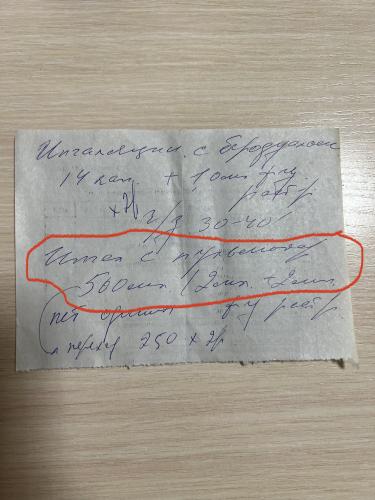 Ингаляции с беродуалом
14 кап + 1 0мл физ
раствр
x 2р ч/з 30-40'
Ингал с пульмикортом
500мкг /2мл + 2мл
физ раствр.
250 x 2р